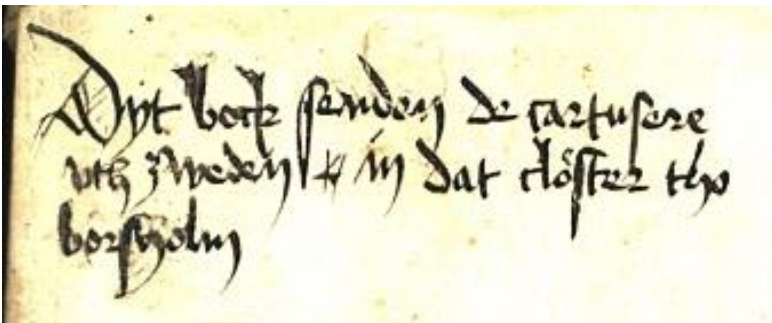 Dyt bock senden de cartusere
vth zweden in dat clöster tho
borsholm